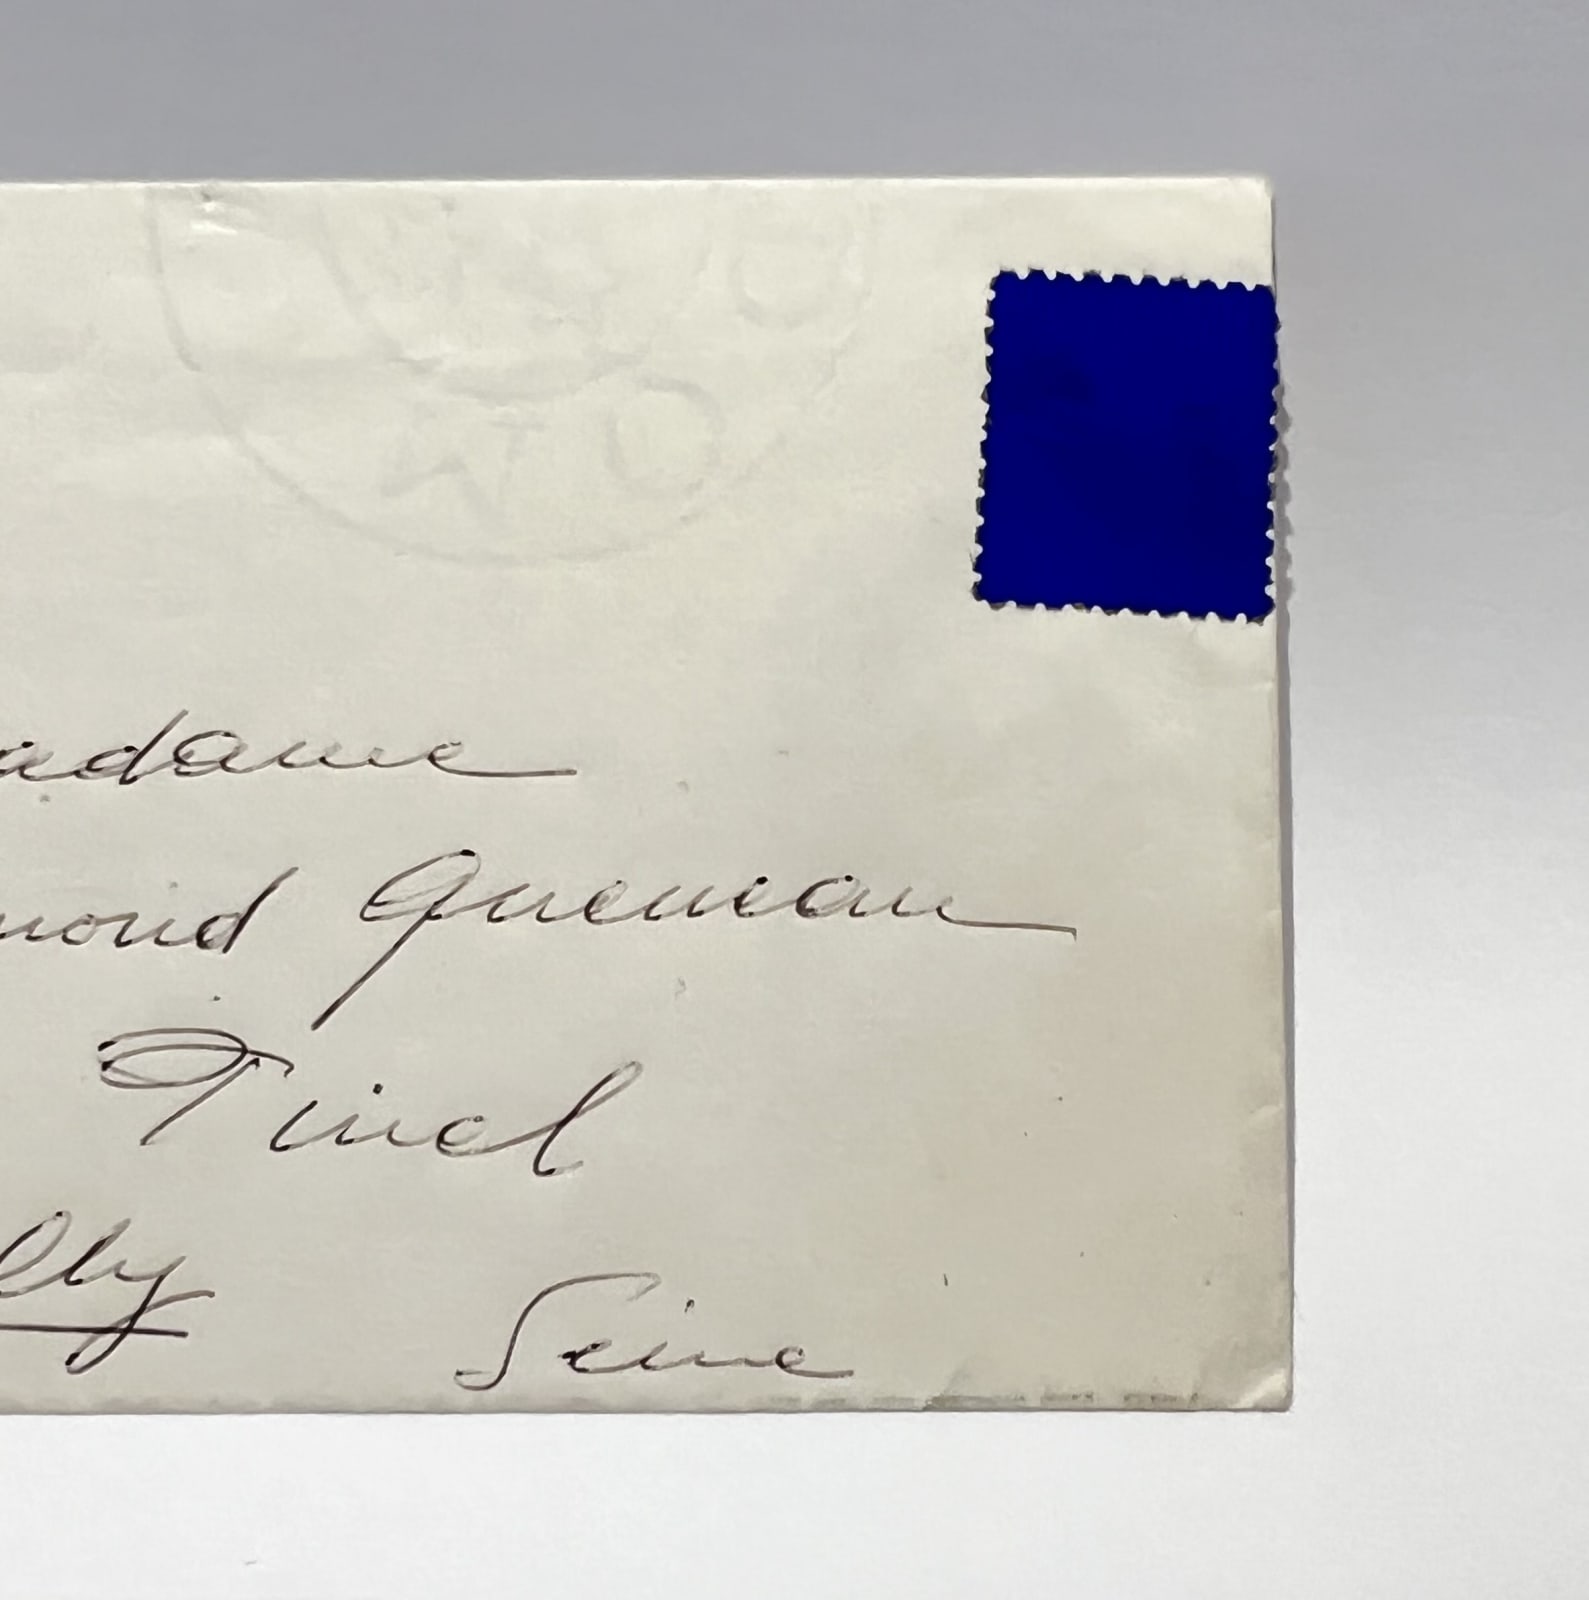 adame
mond Queneau
Tinel
lly Seine